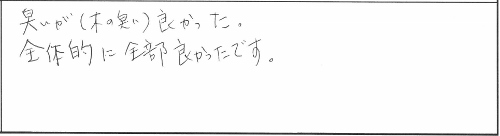 臭いが(木の臭い)良かった。
全体的に全部良かったです。